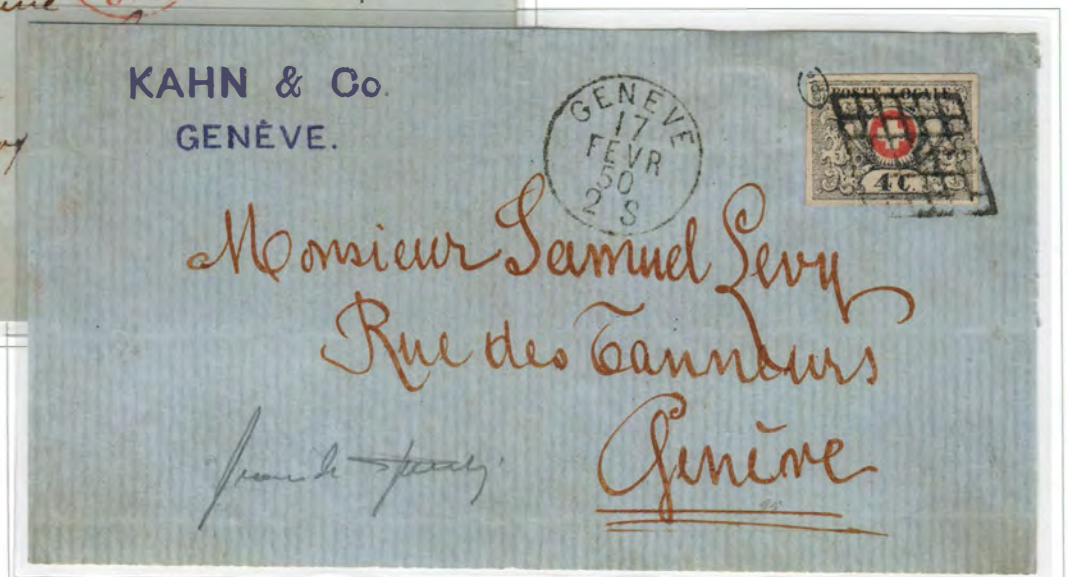 KAHN & Co.
GENÈVE.
GENEVE
17
FEVR
50
2 S
POSTE LOCALE
4 C.
Monsieur Samuel Levy
Rue des Tanneurs
Genève